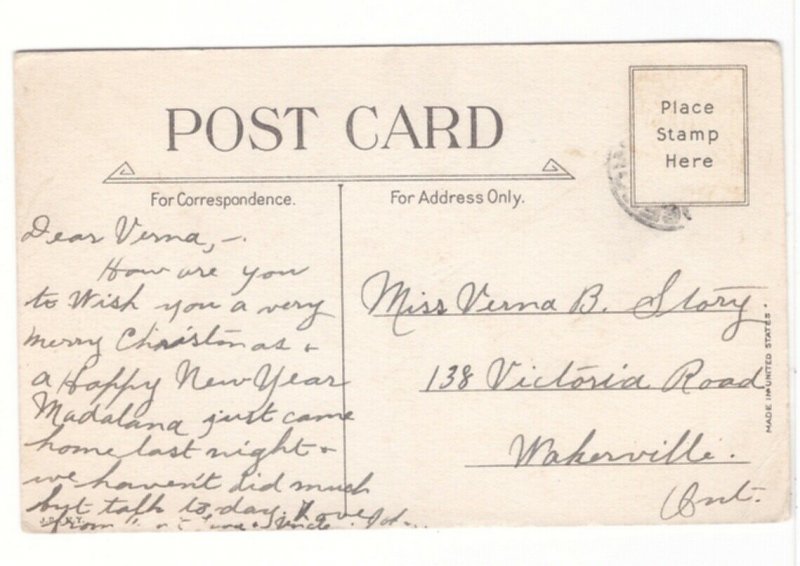 POST CARD
Place
Stamp
Here
For Correspondence.
For Address Only.
Dear Verna, -.
How are you
to Wish you a very
merry Christmas +
a Happy New Year
Madalana just came
home last night +
we haven't did much
but talk to day. Love
from
Miss Verna B. Story
138 Victoria Road
Wakerville.
Ont.
MADE IN UNITED STATES.